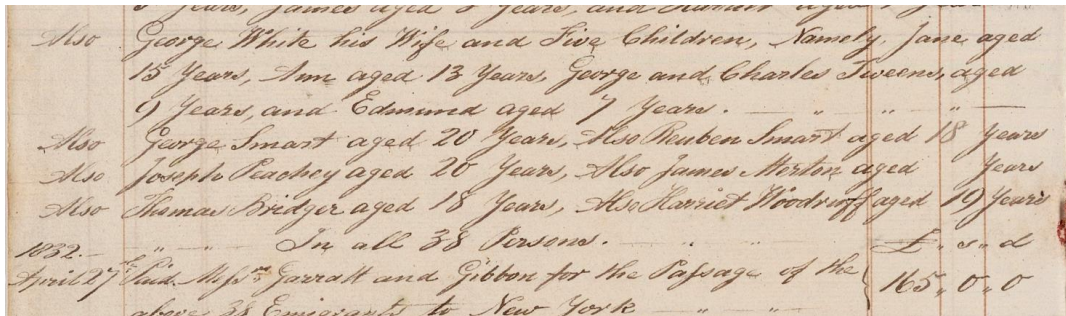 Years, James aged Years, and Harriet aged
Also George White his Wife and Five Children, Namely, Jane aged
15 Years, Ann aged 13 Years, George and Charles Tweens, aged
9 Years, and Edmund aged 7 Years.
Also George Smart aged 20 Years, Also Reuben Smart aged 18 Years
Also Joseph Peachey aged 20 Years, Also James Merton aged Years
Also Thomas Bridger aged 18 Years, Also Harriet Woodruff aged 19 Years
1832.- In all 38 Persons. £ " s " d
April 27th Paid Messrs Garratt and Gibbon for the Passage of the 165 " 0 " 0
above 38 Emigrants to New York